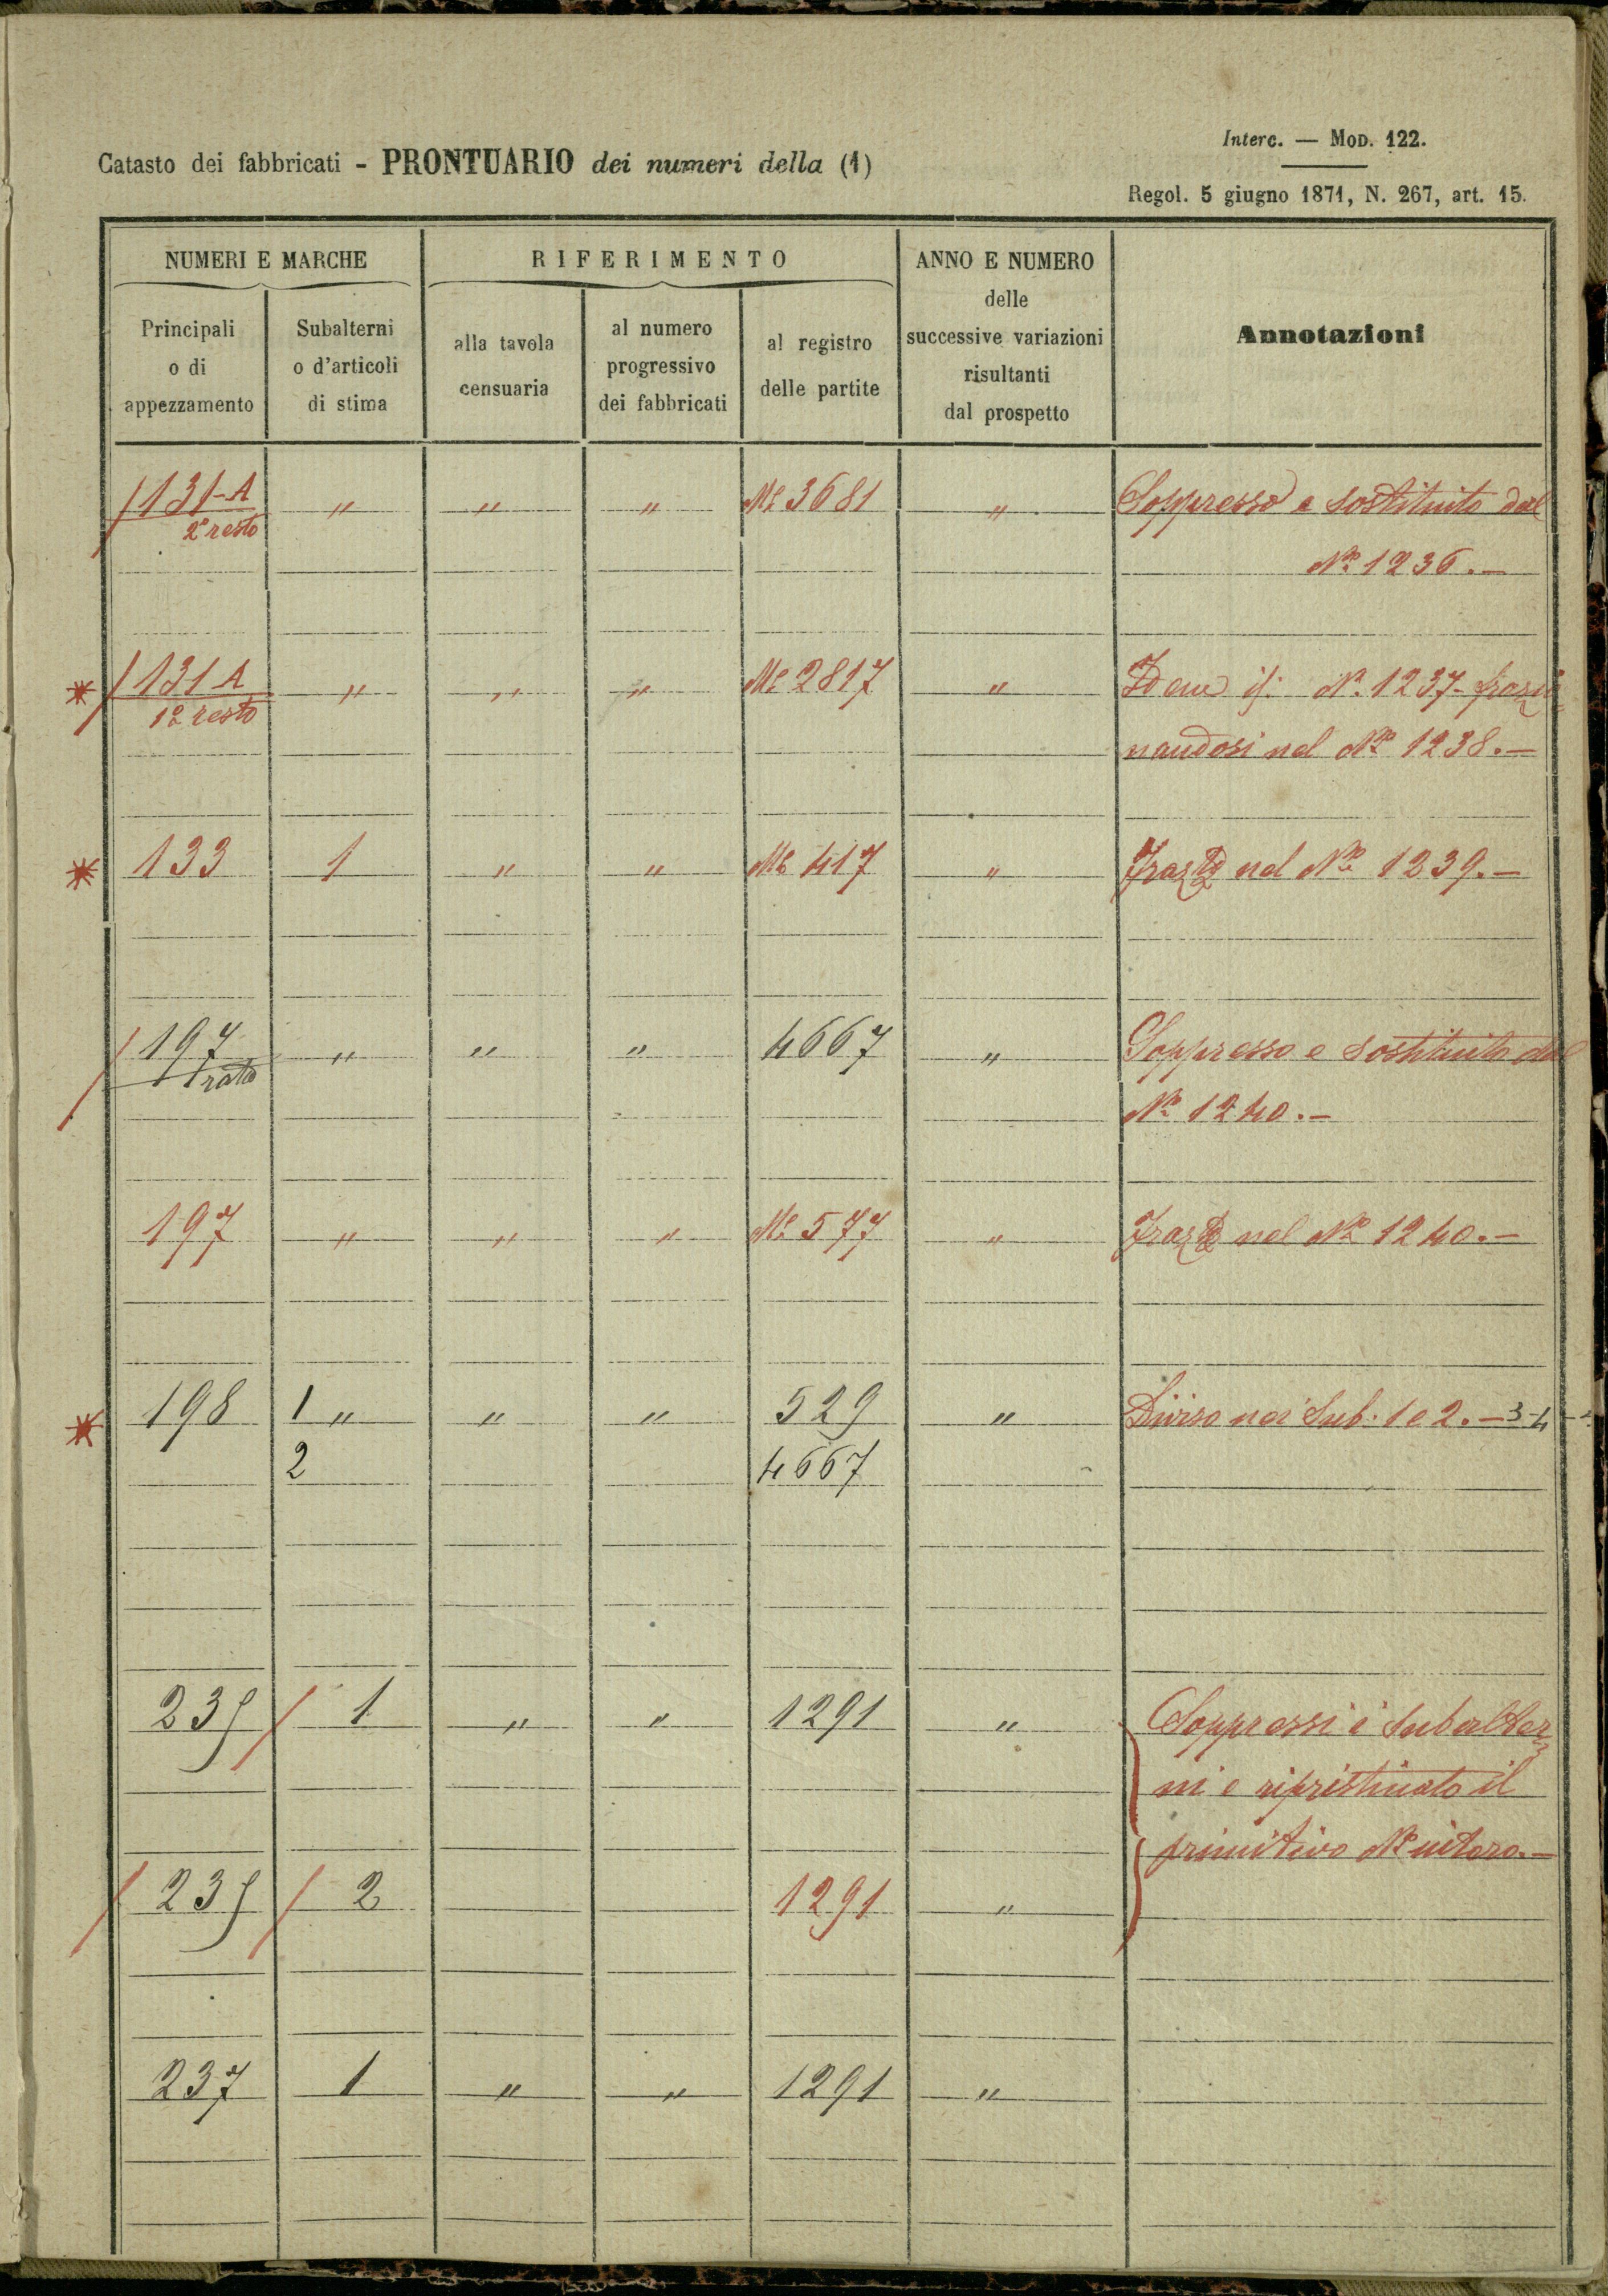 Interc. — MOD. 122.
Catasto dei fabbricati - PRONTUARIO dei numeri della (1)
Regol. 5 giugno 1871, N. 267, art. 15.
NUMERI E MARCHE
RIFERIMENTO
ANNO E NUMERO
delle
successive variazioni
risultanti
dal prospetto
Annotazioni
Principali
o di
appezzamento
Subalterni
o d'articoli
di stima
alla tavola
censuaria
al numero
progressivo
dei fabbricati
al registro
delle partite
131-A " " " 3681 " Soppresso e sostituito dal
2º resto
Nº 1236.—
* 131 A " " " 2817 " Idem Nº 1237-frazio
1º resto
nandosi nel Nº 1238.—
* 133 1 " " 417 " nel Nº 1239.—
197 " " " 4667 " Soppresso e sostituito dal
rata
Nº 1240.—
197 " " " 577 " nel Nº 1240.—
* 198 1 " " " 529 " Diviso nei Sub. 1 e 2.—3-4-
2 4667
235 1 " " 1291 " Soppressi i subalter
ni e ripristinato il
primitivo Nº intero.—
235 2 1291 "
237 1 " " 1291 "